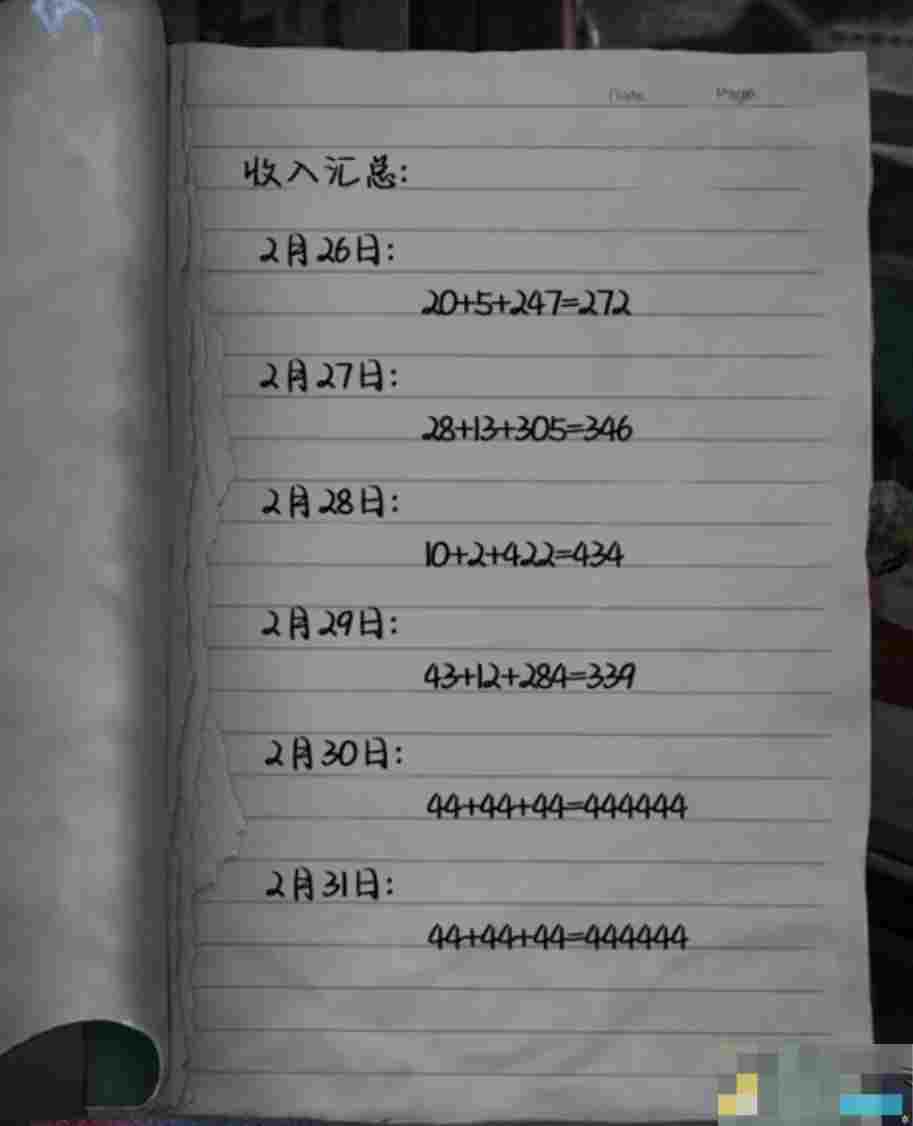 Date Page
收入汇总:
2月26日:
20+5+247=272
2月27日:
28+13+305=346
2月28日:
10+2+422=434
2月29日:
43+12+284=339
2月30日:
44+44+44=444444
2月31日:
44+44+44=444444